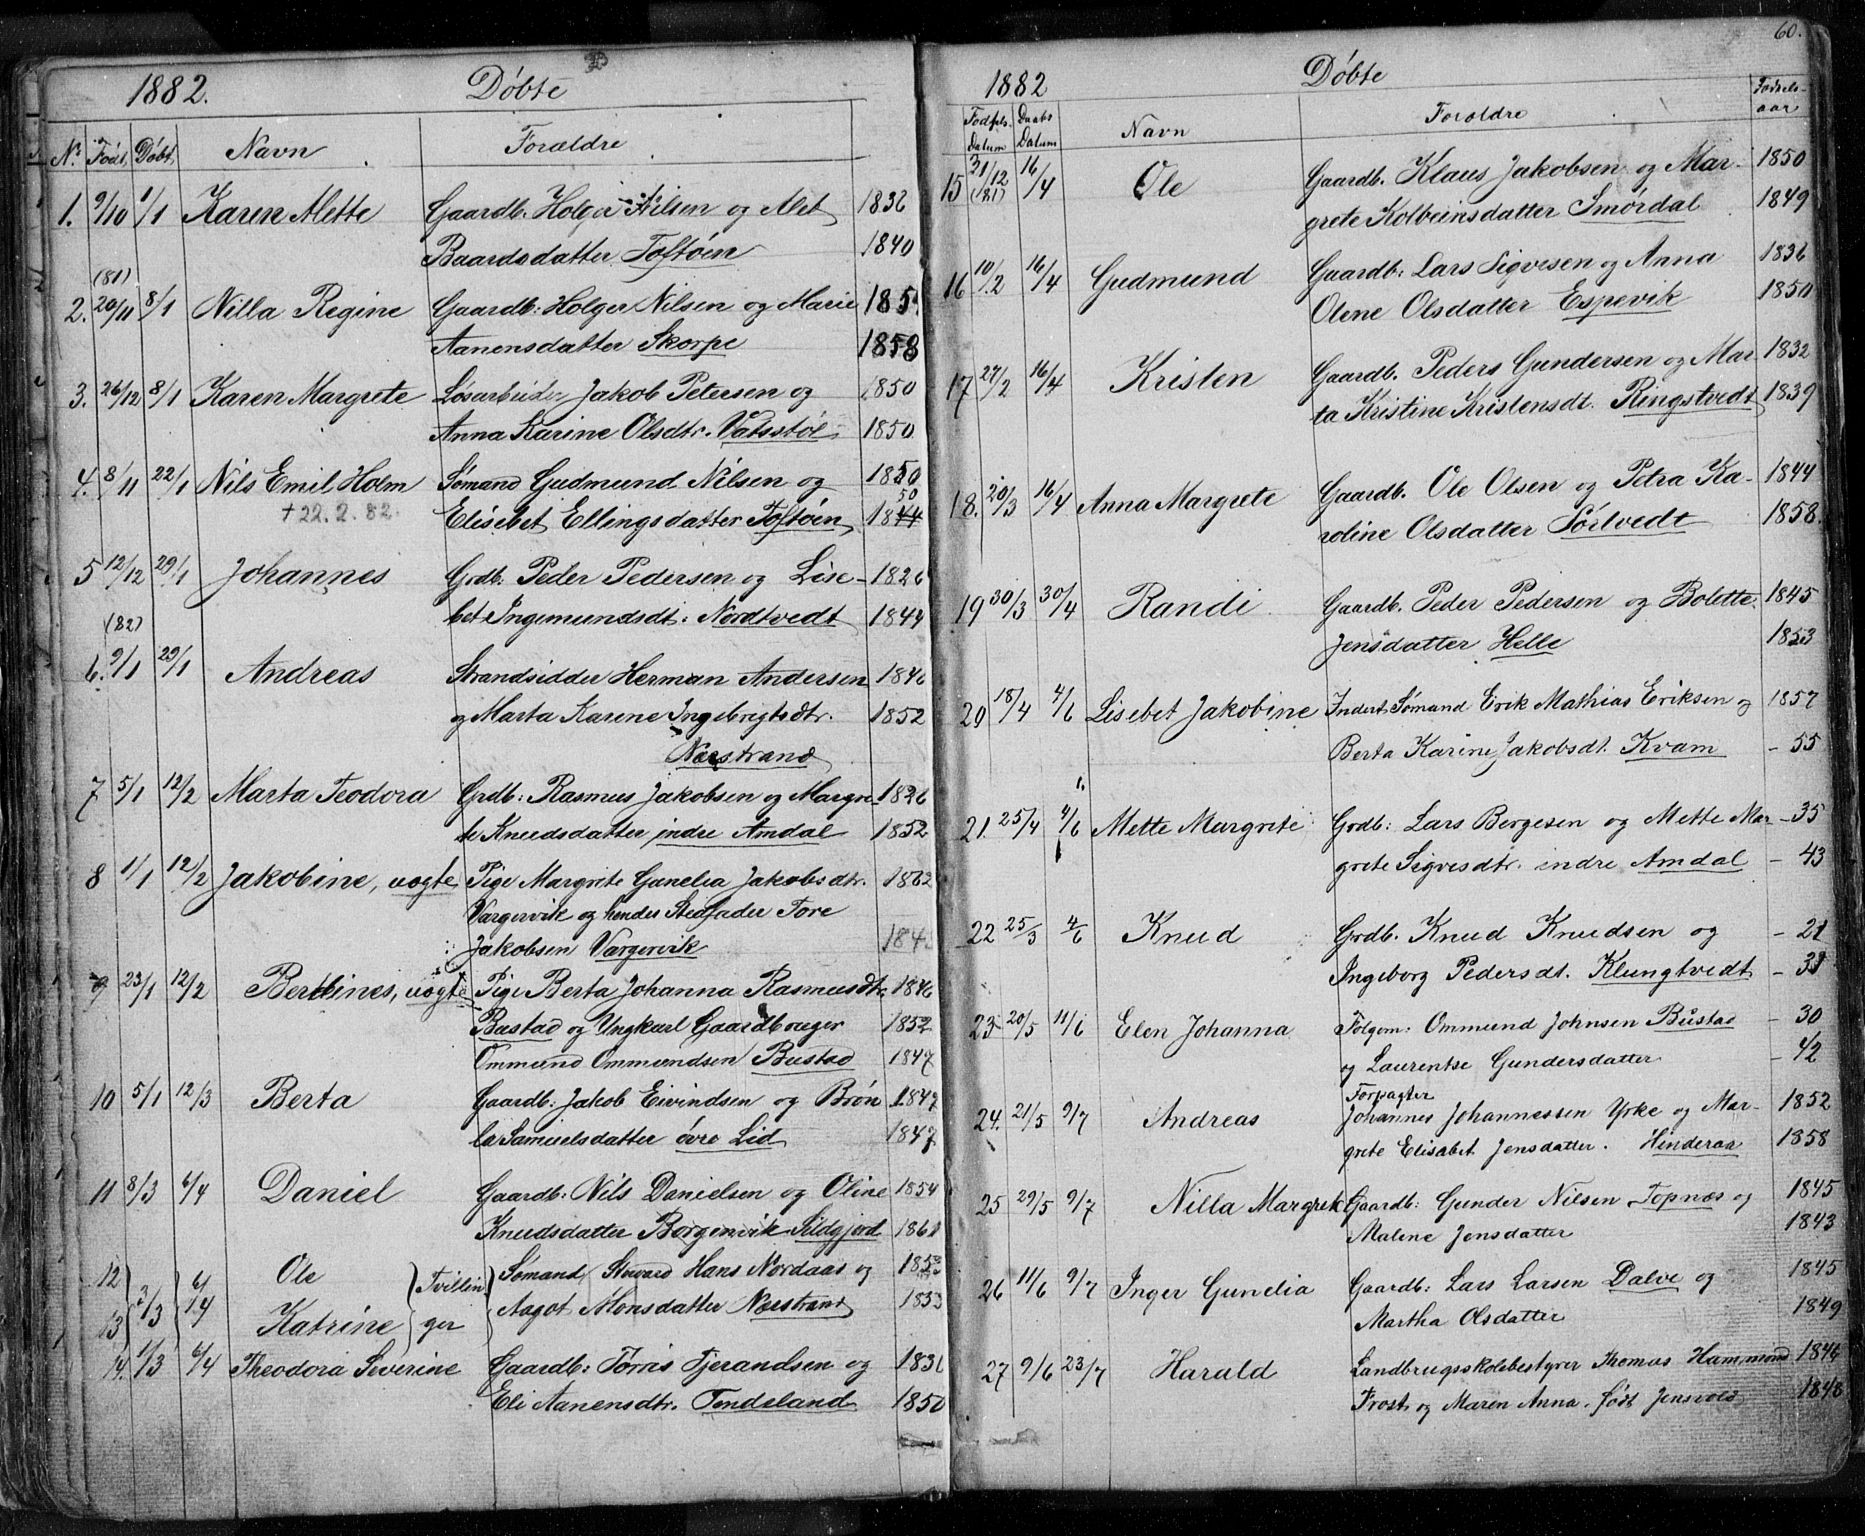 1882. Døbte
No Født Døbt Navn Forældre
1. 9/10 1/1 Karen Alette Gaardb. Holger Nilsen og Alet 1836
Baardsdatter Toftøen 1840
(81)
2. 20/11 8/1 Nilla Regine Gaardb: Holger Nilsen og Marie
Aanensdatter Skorpe 1858
3. 26/12 8/1 Karen Margrete Løsarbeider Jakob Petersen og 1850
Anna Karine Olsdtr. Vatsstøl 1850
4. 8/11 22/1 Nils Emil Holm Sømand Gudmund Nilsen og 1850
+ 22. 2. 82. Elisebet Ellingsdatter Toftøen 1844 50
5 12/12 29/1 Johannes Grdb: Peder Pedersen og Lise- 1826
bet Ingemundsdt: Nordtvedt 1844
(82)
6. 9/1 29/1 Andreas Strandsidder Herman Andersen 1846
og Marta Karine Ingebrigtsdtr. 1852
Nærstrand
7 5/1 12/2 Marta Teodora Grdb: Rasmus Jakobsen og Margre- 1826
te Knudsdatter indre Amdal 1832
8 1/1 12/2 Jakobine, uægte Pige Margrete Gunelia Jakobsdtr. 1862
Vargervik og hendes Stedfader Tore
Jakobsen Vargervik
9 23/1 12/2 Bertines, uægte Pige Berta Johanna Rasmusdtr 1846
Bustad og Ungkarl Gaardbruger 1852
Ommund Ommundsen Bustad 1847
10 5/1 12/3 Berta Gaardb: Jakob Eivindsen og Brøn 1847
la Samuelsdatter øvre Lid 1847
11 8/3 6/4 Daniel Gaardb: Nils Danielsen og Oline 1854
Knudsdatter Borgenvik Sildgjord 1861
12 Ole Tvillin Sømand Hans Nordaas og
13 2/3 6/4 Katrine ger Aagot Monsdatter Nærstrand 1853
14. 1/3 6/4 Theodora Severine Gaardb: Torris Tjerandsen og 1831
Eli Aanensdtr. Tendeland 1850
60.
1882 Døbte
Fødsels Datum Daabs Datum Navn Foreldre Fødsels-aar
15 31/12 (81) 16/4 Ole Gaardb. Klaus Jakobsen og Mar- 1850
grete Kolbeinsdatter Smørdal 1849
16 10/2 16/4 Gudmund Gaardb: Lars Sigvesen og Anna 1836
Olene Olsdatter Espevik 1850
17 27/2 16/4 Kristen Gaardb. Peders Gundersen og Mar- 1832
ta Kristine Kristensdt. Ringstvedt 1839
18. 20/3 16/4 Anna Margrete Gaardb. Ole Olsen og Petra Ka- 1844
roline Olsdatter Sørtvedt 1858.
19 30/3 30/4 Randi Gaardb. Peder Pedersen og Bolette 1845
Jensdatter Helle 1853
20 18/4 4/6 Lisebet Jakobine Inderst Sømand Erik Mathias Eriksen og 1857
Berta Karine Jakobsdt. Kvam - 55
21. 25/4 4/6 Mette Margrete Grdb: Lars Bergesen og Mette Mar- 35
grete Sigvesdtr. indre Amdal - 43
22 25/3 4/6 Knud Grdb. Knud Knudsen og - 21
Ingeborg Pedersdt. Klungtvedt - 31
23 20/5 11/6 Elen Johanna Folgem: Ommund Johnsen Bustad - 30
og Laurentse Gundersdatter - 42
Forpagter
24. 21/5 9/7 Andreas Johannes Johannessen Yrke og Mar- 1852
grete Elisabet Jensdatter. Hinderaa 1858
25 29/5 9/7 Nilla Margrete Gaardb: Gunder Nilsen Topnæs og 1845
Malene Jensdatter 1843
26 11/6 9/7 Inger Gunelia Gaardb: Lars Larsen Dalve og 1845
Martha Olsdatter 1849
27 9/6 23/7 Harald Landbrugsskolebestyrer Thomas Hammond 1846
Frost og Maren Anna, født Jensvold 1848